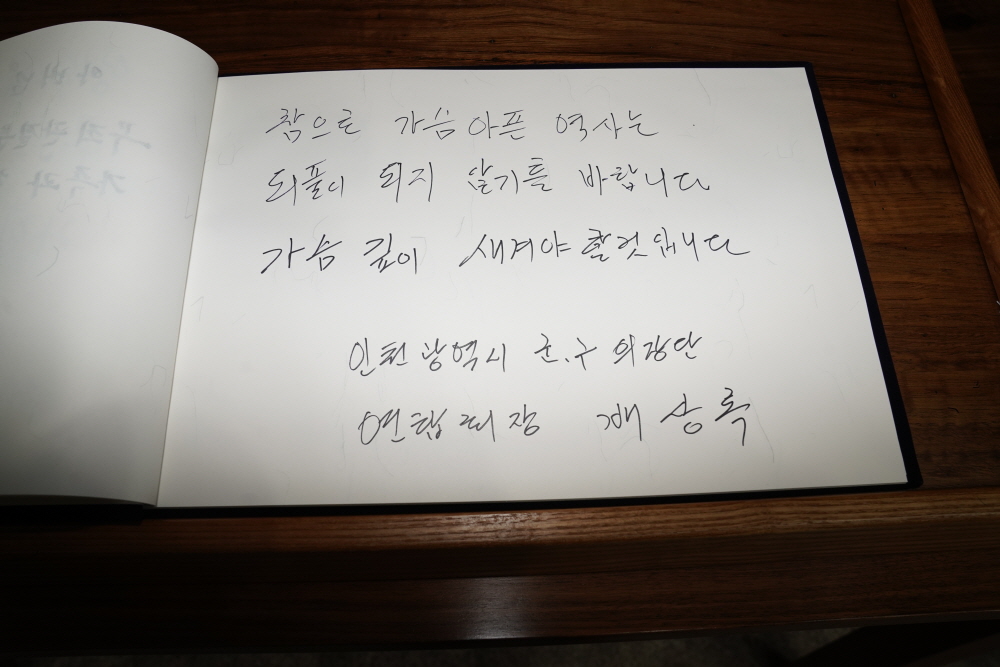 참으로 가슴 아픈 역사는
되풀이 되지 않기를 바랍니다
가슴 깊이 새겨야 할것 입니다
인천광역시 군.구 의장단
연합회장 배상록